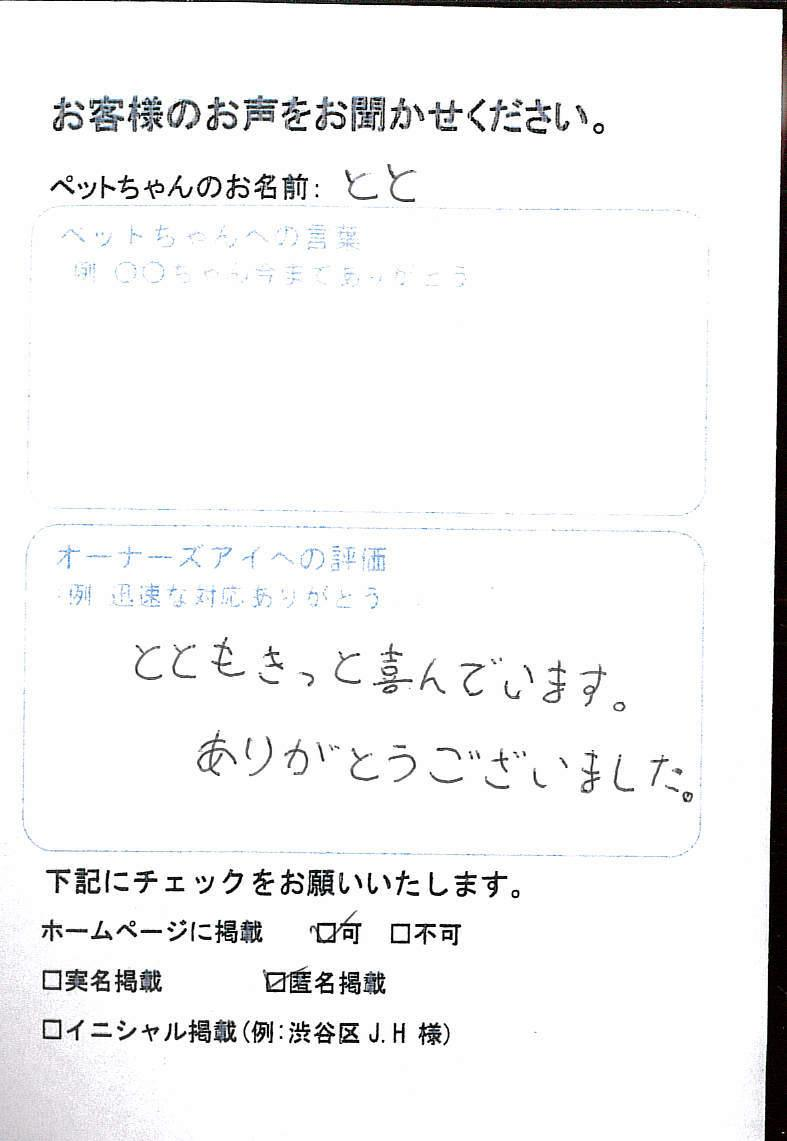 お客様のお声をお聞かせください。
ペットちゃんのお名前: とと
ペットちゃんへの言葉
例 〇〇ちゃん今までありがとう
オーナーズアイへの評価
例 迅速な対応ありがとう
ととももきっと喜んでいます。
ありがとうございました。
下記にチェックをお願いいたします。
ホームページに掲載 ☑可 □不可
□実名掲載 ☑匿名掲載
□イニシャル掲載(例:渋谷区 J.H 様)